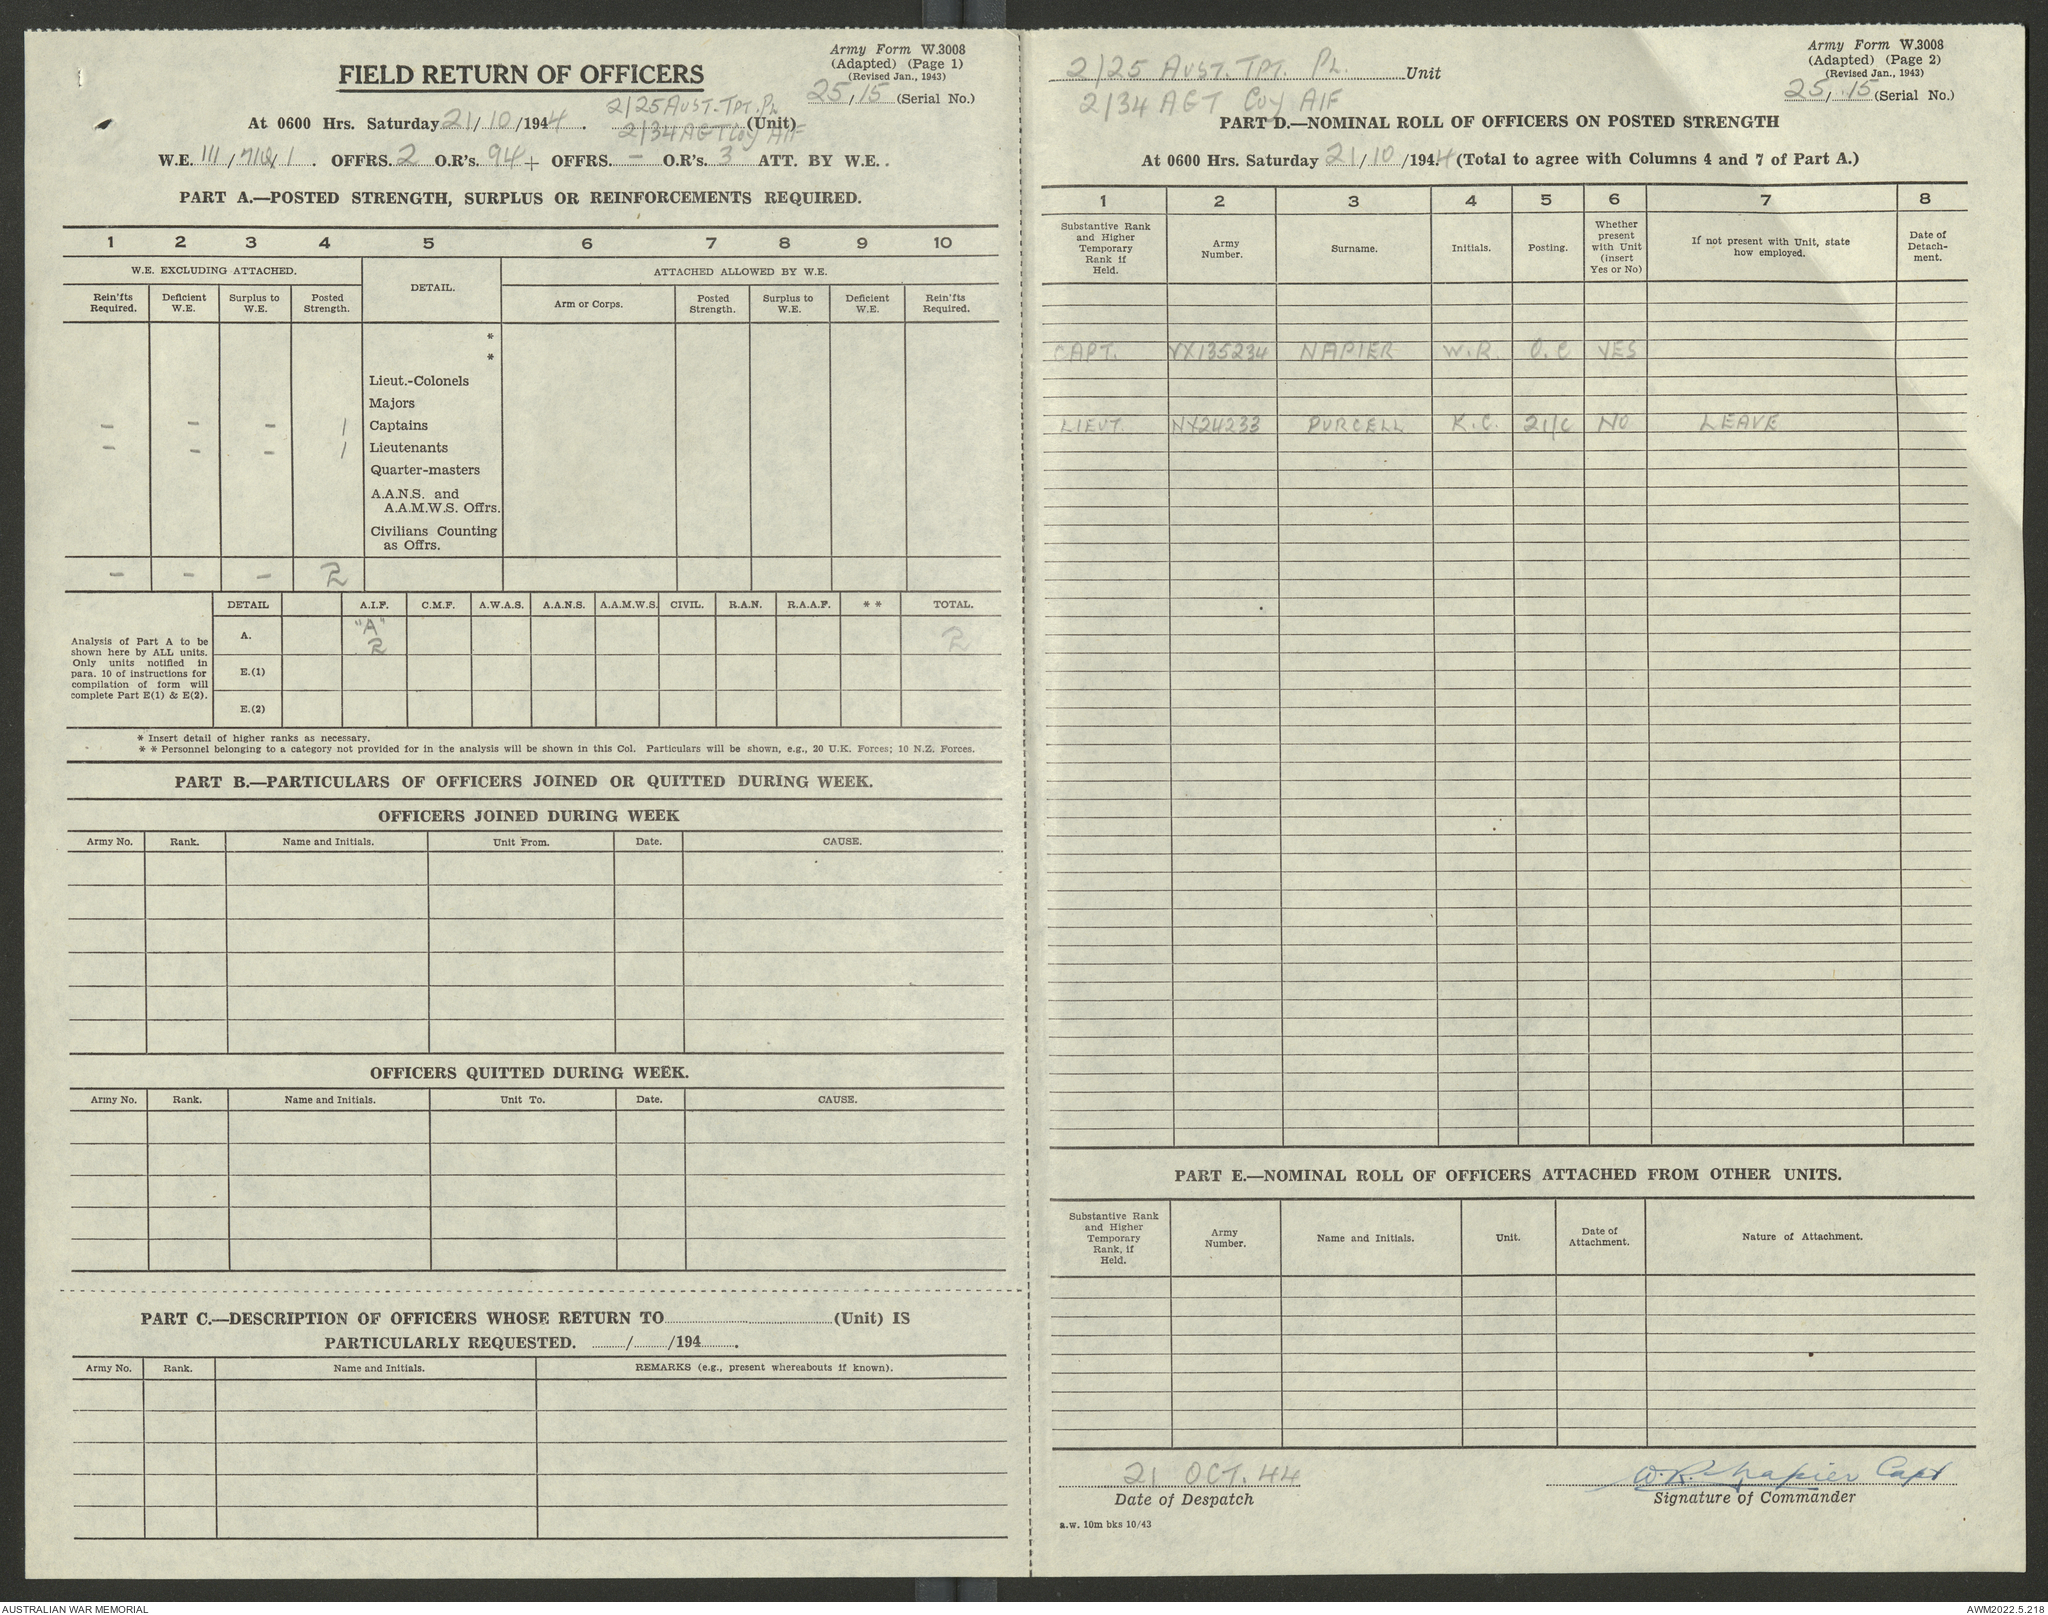 Army Form W.3008
(Adapted) (Page 1)
(Revised Jan., 1943)
FIELD RETURN OF OFFICERS
25/15 (Serial No.)
2/25 AUST. TPT. PL
At 0600 Hrs. Saturday 21/10/1944. (Unit)
2/34 AGT Coy AIF
W.E. III/710/1. OFFRS. 2 O.R's. 94 + OFFRS. - O.R's. 3 ATT. BY W.E.
PART A.—POSTED STRENGTH, SURPLUS OR REINFORCEMENTS REQUIRED.
1 2 3 4 5 6 7 8 9 10
W.E. EXCLUDING ATTACHED. DETAIL. ATTACHED ALLOWED BY W.E.
Rein'fts Required. Deficient W.E. Surplus to W.E. Posted Strength. Arm or Corps. Posted Strength. Surplus to W.E. Deficient W.E. Rein'fts Required.
*
*
Lieut.-Colonels
Majors
- - - 1 Captains
- - - 1 Lieutenants
Quarter-masters
A.A.N.S. and
A.A.M.W.S. Offrs.
Civilians Counting
as Offrs.
- - - 2
DETAIL A.I.F. C.M.F. A.W.A.S. A.A.N.S. A.A.M.W.S. CIVIL. R.A.N. R.A.A.F. * * TOTAL.
Analysis of Part A to be
shown here by ALL units.
Only units notified in
para. 10 of instructions for
compilation of form will
complete Part E(1) & E(2).
A. "A" 2 2
E.(1)
E.(2)
* Insert detail of higher ranks as necessary.
* * Personnel belonging to a category not provided for in the analysis will be shown in this Col. Particulars will be shown, e.g., 20 U.K. Forces; 10 N.Z. Forces.
PART B.—PARTICULARS OF OFFICERS JOINED OR QUITTED DURING WEEK.
OFFICERS JOINED DURING WEEK
Army No. Rank. Name and Initials. Unit From. Date. CAUSE.
OFFICERS QUITTED DURING WEEK.
Army No. Rank. Name and Initials. Unit To. Date. CAUSE.
PART C.—DESCRIPTION OF OFFICERS WHOSE RETURN TO (Unit) IS
PARTICULARLY REQUESTED. / /194 .
Army No. Rank. Name and Initials. REMARKS (e.g., present whereabouts if known).
Army Form W.3008
(Adapted) (Page 2)
(Revised Jan., 1943)
2/25 AUST. TPT. PL. Unit
25/15 (Serial No.)
2/34 AGT Coy AIF
PART D.—NOMINAL ROLL OF OFFICERS ON POSTED STRENGTH
At 0600 Hrs. Saturday 21/10/1944 (Total to agree with Columns 4 and 7 of Part A.)
1 2 3 4 5 6 7 8
Substantive Rank and Higher Temporary Rank if Held. Army Number. Surname. Initials. Posting. Whether present with Unit (insert Yes or No) If not present with Unit, state how employed. Date of Detach- ment.
CAPT. VX135234 NAPIER W.R. O.C YES
LIEUT. NX24233 PURCELL K.C. 2I/C NO LEAVE
PART E.—NOMINAL ROLL OF OFFICERS ATTACHED FROM OTHER UNITS.
Substantive Rank and Higher Temporary Rank, if Held. Army Number. Name and Initials. Unit. Date of Attachment. Nature of Attachment.
21 OCT. 44 W.R. Napier Capt
Date of Despatch Signature of Commander
a.w. 10m bks 10/43
AUSTRALIAN WAR MEMORIAL AWM2022.5.218